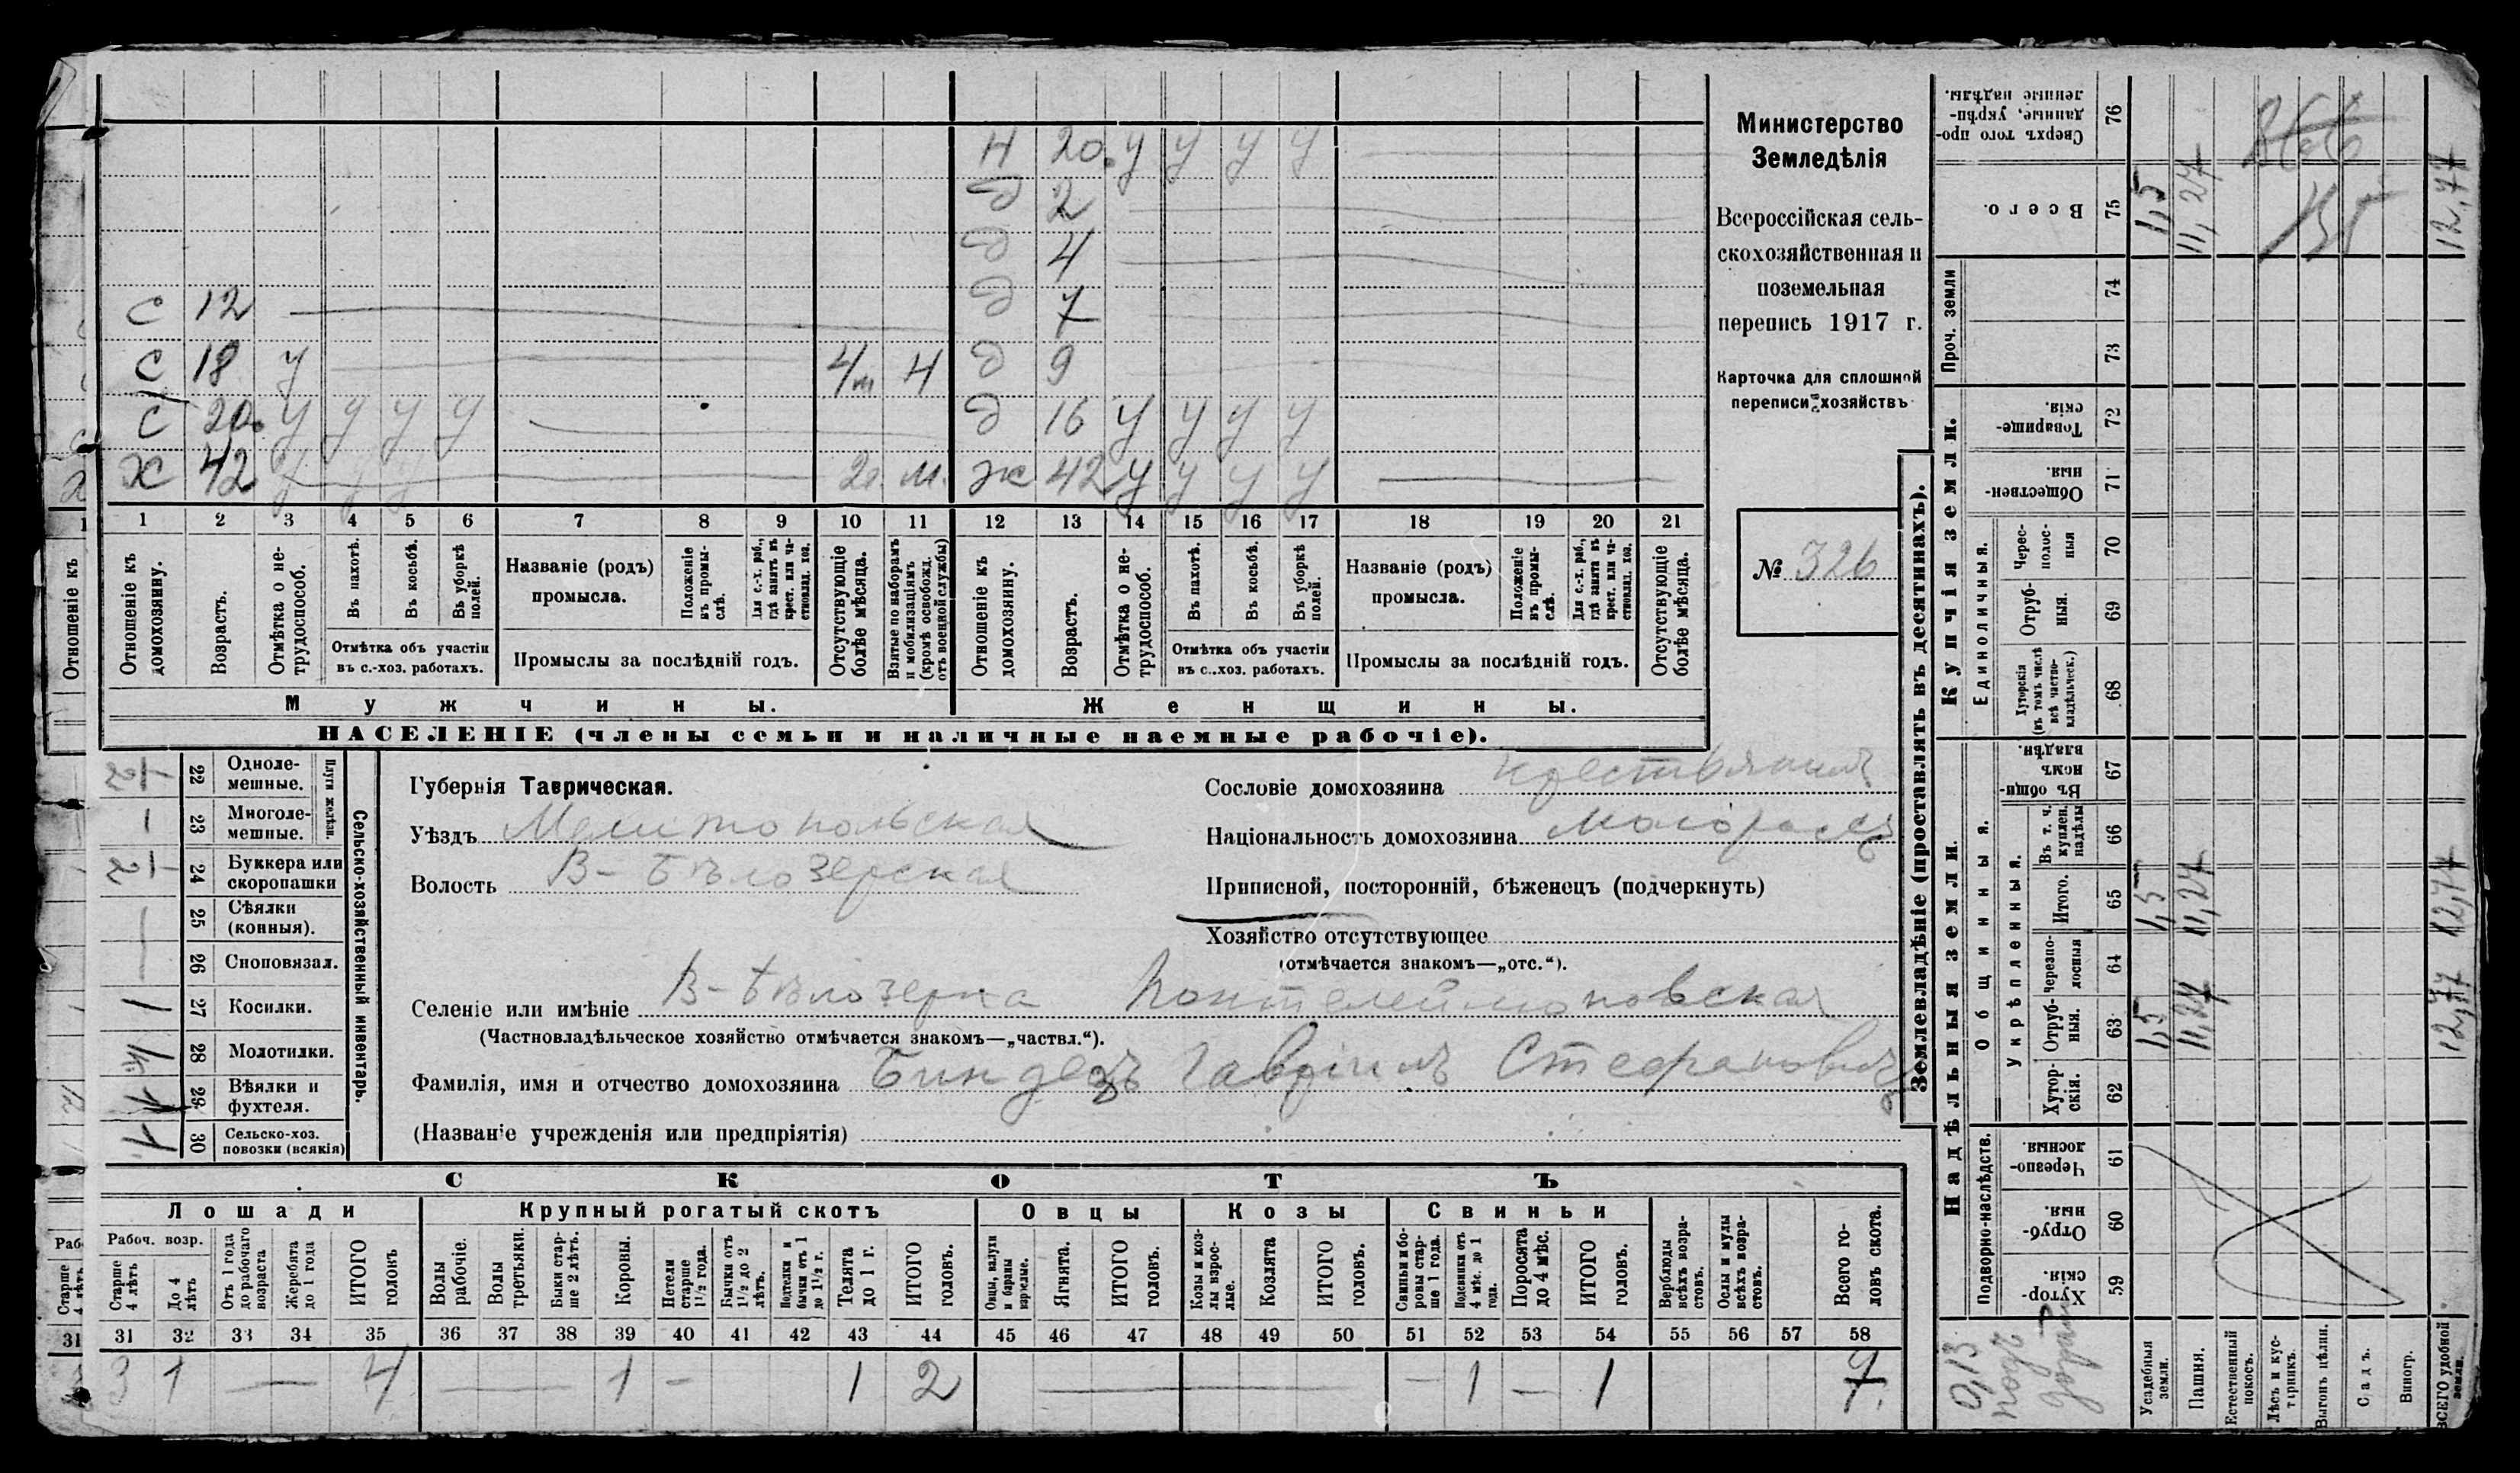 Министерство
Земледѣлія
Всероссійская сель-
скохозяйственная и
поземельная
перепись 1917 г.
Карточка для сплошной
переписи хозяйствъ
№ 326
Н 20. У У У У
Д 2
Д 4
С 12 Д 7
С 18 У 4 м Н Д 9
С 20. У У У У Д 16 У У У У
Х 42 У У У 2 г. М. Ж 42 У У У У
1 2 3 4 5 6 7 8 9 10 11 12 13 14 15 16 17 18 19 20 21
Отношеніе къ домохозяину.
Возрастъ.
Отмѣтка о не-трудоспособ.
Въ пахотѣ.
Въ косьбѣ.
Въ уборкѣ полей.
Отмѣтка объ участіи въ с.-хоз. работахъ.
Названіе (родъ) промысла.
Положеніе въ промы-слѣ.
Для с.-х. раб., гдѣ занятъ въ крест. или ча-стновлад. хоз.
Промыслы за послѣдній годъ.
Отсутствующіе болѣе мѣсяца.
Взятые по наборамъ и мобилизаціямъ (кромѣ освобожд. отъ военной службы)
Отношеніе къ домохозяину.
Возрастъ.
Отмѣтка о не-трудоспособ.
Въ пахотѣ.
Въ косьбѣ.
Въ уборкѣ полей.
Отмѣтка объ участіи въ с.-хоз. работахъ.
Названіе (родъ) промысла.
Положеніе въ промы-слѣ.
Для с.-х. раб., гдѣ занята въ крест. или ча-стновлад. хоз.
Промыслы за послѣдній годъ.
Отсутствующіе болѣе мѣсяца.
Мужчины. Женщины.
НАСЕЛЕНІЕ (члены семьи и наличные наемные рабочіе).
Сельско-хозяйственный инвентарь.
Плуги желѣзн.
22 Одноле-мешные.
23 Многоле-мешные.
24 Буккера или скоропашки
25 Сѣялки (конныя).
26 Сноповязал.
1 27 Косилки.
28 Молотилки.
29 Вѣялки и фухтеля.
30 Сельско-хоз. повозки (всякія)
Губернія Таврическая.
Уѣздъ Мелитопольская
Волость В-Бѣлозерская
Сословіе домохозяина крестьянинъ
Національность домохозяина малороссъ
Приписной, посторонній, бѣженецъ (подчеркнуть)
Хозяйство отсутствующее
(отмѣчается знакомъ—„отс.“).
Селеніе или имѣніе В-Бѣлозерка Пантелеймоновская
(Частновладѣльческое хозяйство отмѣчается знакомъ—„частвл.“).
Фамилія, имя и отчество домохозяина Гавріилъ Стефановичъ
(Названіе учрежденія или предпріятія)
СКОТЪ
Лошади Крупный рогатый скотъ Овцы Козы Свиньи
Рабоч. возр.
Старше 4 лѣтъ
До 4 лѣтъ
Отъ 1 года до рабочаго возраста
Жеребята до 1 года
ИТОГО головъ
Волы рабочіе.
Волы третьяки.
Быки стар-ше 2 лѣтъ.
Коровы.
Нетели старше 1½ года.
Бычки отъ 1½ до 2 лѣтъ.
Подтелки и бычки отъ 1 до 1½ г.
Телята до 1 г.
ИТОГО головъ.
Овцы, валухи и бараны взрослые.
Ягнята.
ИТОГО головъ.
Козы и коз-лы взрос-лые.
Козлята
ИТОГО головъ.
Свиньи и бо-ровы стар-ше 1 года.
Подсвинки отъ 4 мѣс. до 1 года.
Поросята до 4 мѣс.
ИТОГО головъ.
Верблюды всѣхъ возра-стовъ.
Ослы и мулы всѣхъ возра-стовъ.
Всего го-ловъ скота.
31 32 33 34 35 36 37 38 39 40 41 42 43 44 45 46 47 48 49 50 51 52 53 54 55 56 57 58
3 1 — 4 — 1 — 1 2 — — 1 — 1 7.
Землевладѣніе (проставлять въ десятинахъ).
Надѣльныя земли.
Купчія земли.
Проч. земли
Подворно-наслѣдств.
Общинныя.
Укрѣпленныя.
Единоличныя.
Хутор-скія. 59
Отруб-ныя. 60
Черезпо-лосныя. 61
Хутор-скія. 62
Отруб-ныя. 63
Черезпо-лосныя 64
Итого. 65
Въ т. ч. куплен. надѣлы 66
Въ общи-номъ владѣн. 67
Хуторскія (въ томъ числѣ всѣ частно-владѣльческ.) 68
Отруб-ныя. 69
Черес-полос-ныя 70
Обществен-ныя. 71
Товарище-скія. 72
73
74
Всего. 75
Сверхъ того про-данные, укрѣп-ленные надѣлы. 76
Усадебныя земли. 1,5 1,5 1,5
Пашня. 11,27 11,27 11,27
Естественный покосъ.
Лѣсъ и кус-тарникъ.
Выгонъ цѣлин.
Садъ.
Виногр.
ВСЕГО удобной земли. 12,77 12,77 12,77
0,13
подъ